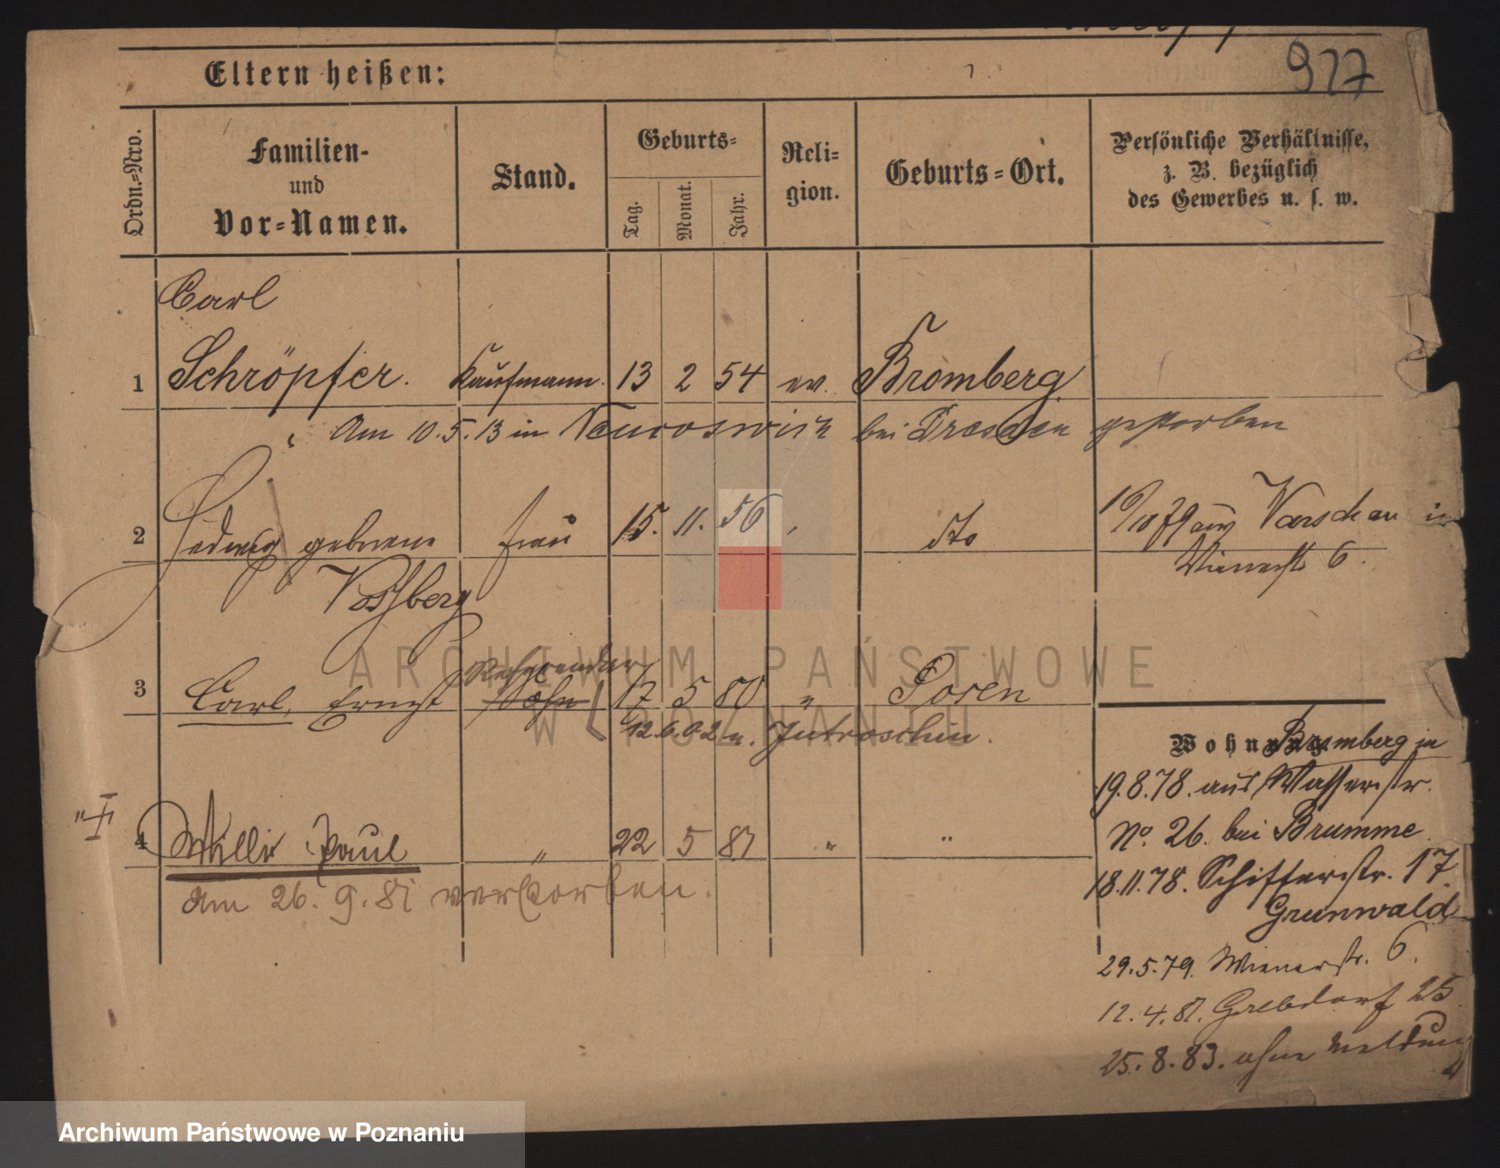 927
Eltern heißen:
Ordn.-Nro.
Familien-
und
Vor-Namen.
Stand.
Geburts-
Tag.
Monat.
Jahr.
Reli-
gion.
Geburts-Ort.
Persönliche Verhältnisse,
z. B. bezüglich
des Gewerbes u. s. w.
Carl
1 Schröpfer. Kaufmann. 13 2 54 ev. Bromberg
Am 10.5.13 in bei Dresden gestorben
2 Hedwig geborene Frau 15. 11. 56 dto
Warschau in
Wienerstr 6.
3 Carl, Ernst Referendar Sohn 17 5 80 " Posen
12.6.02 n. Jutroschin.
Wohnung
Bromberg in
19.8.78. aus Wasserstr.
No. 26. bei Brumme
18.11.78. Schifferstr. 17.
Grunwald
4 Willi Paul " 22 5 81 " "
Am 26.9.81 verstorben.
29.5.79. Wienerstr. 6.
12.4.81. 25
25.8.83. ohne Meldung
ARCHIWUM PAŃSTWOWE
W POZNANIU
Archiwum Państwowe w Poznaniu